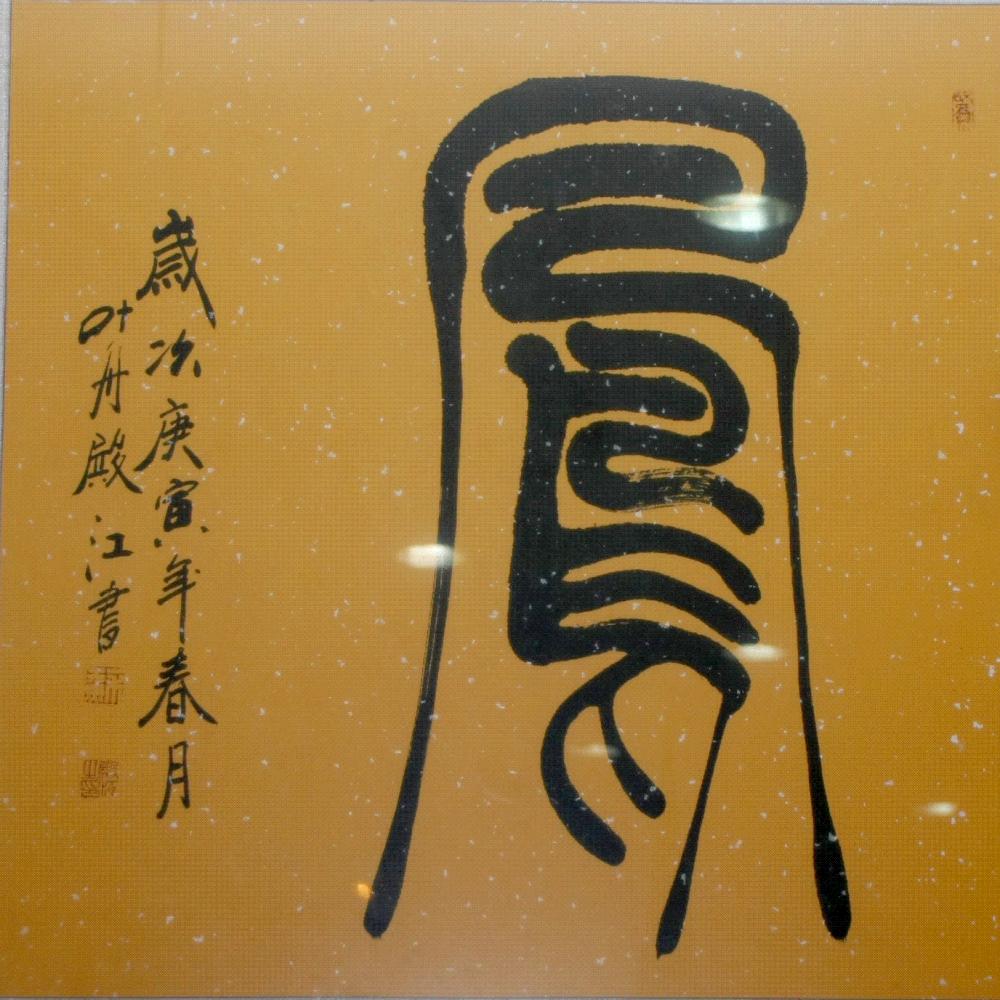 鳳
歲次庚寅年春月
叶舟殿江書